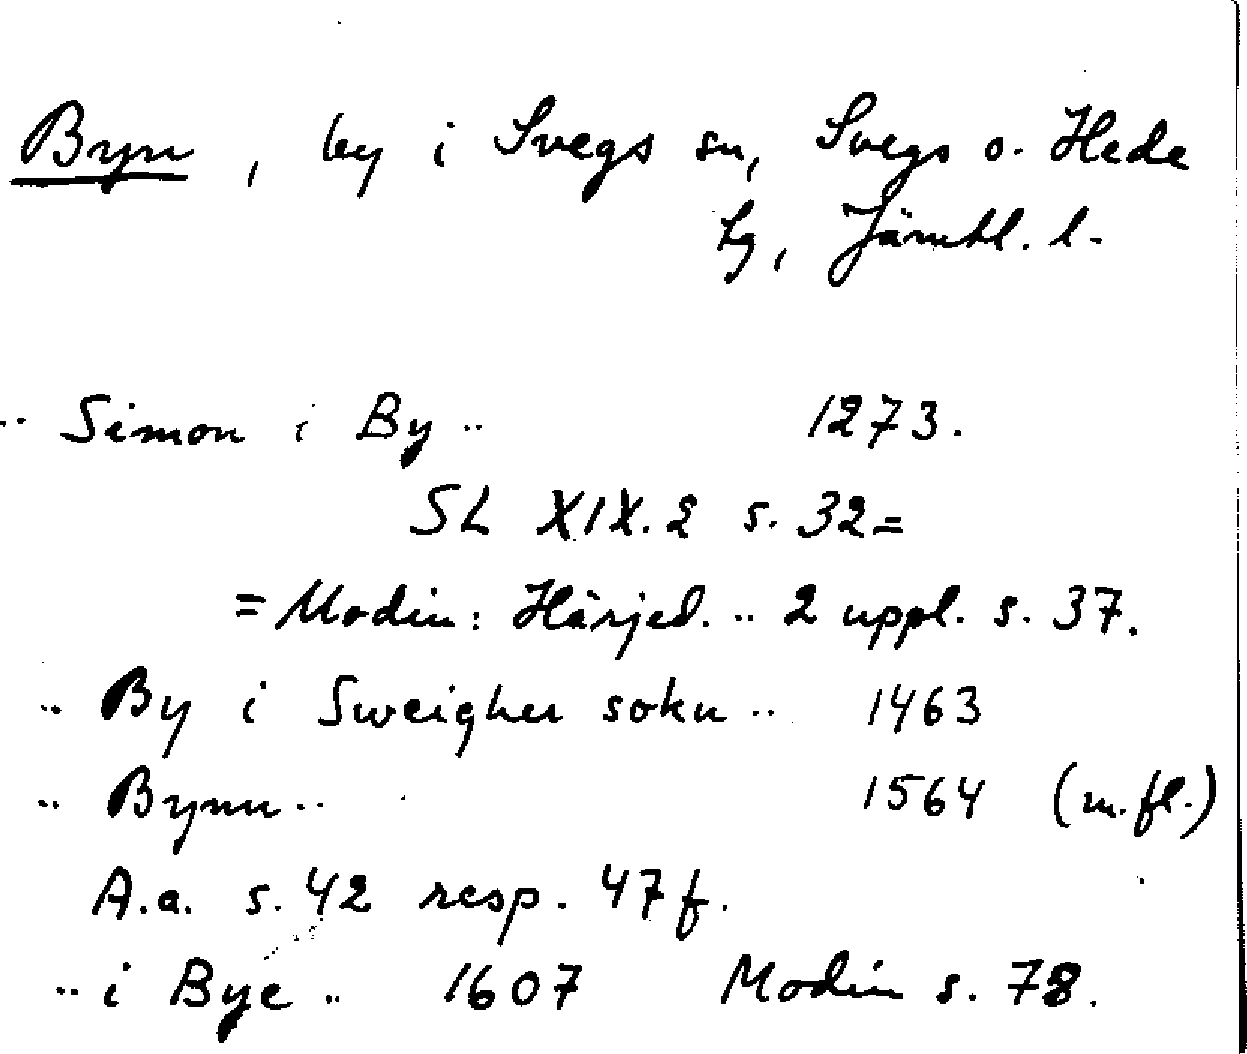 Byn, by i Svegs sn, Svegs o. Hede
tg, Jämtl. l.
.. Simon i By .. 1273.
SL XIX.2 s. 32 =
= Modin: Härjed. .. 2 uppl. s. 37.
.. By i Sweigher sokn .. 1463
.. Bynn .. 1564 (m.fl.)
A.a. s. 42 resp. 47 f.
.. i Bye .. 1607 Modin s. 78.